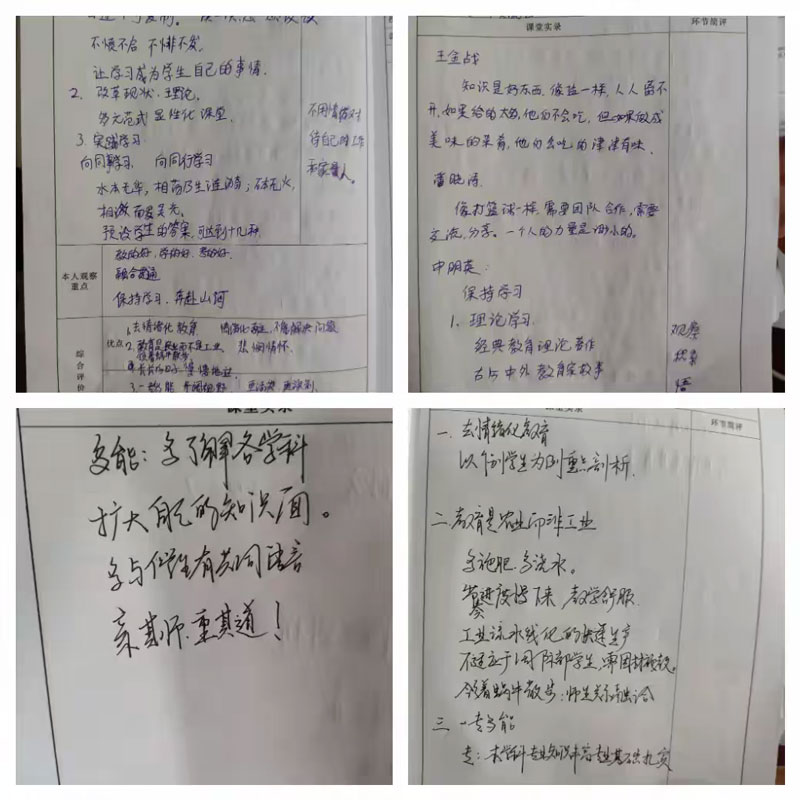 不愤不启 不悱不发
让学习成为学生自己的事情.
2. 改革现状.理论.
多元范式 显性化课堂.
3. 实践学习
向同事学习 向同行学习
水本无华,相荡乃生涟漪;石本无火,
相激而发灵光.
预设学生的答案,可达到十几种.
不用情绪对
待自己的工作
和家人.
本人观察
重点
教的好,学的好,
融合贯通
保持学习.奔赴山河
综
合
评
价
优点
1.去情绪化教育
不能解决问题
2.教育是农业而不是工业.
悲悯情怀.
课堂实录
环节简评
王金战
知识是好东西.像盐一样.人人离不
开.如果给的太多,他们不会吃,但如果做成
美味的菜肴,他们会吃的津津有味.
像打篮球一样.需要团队合作,需要
交流,分享。一个人的力量是渺小的。
保持学习
1、理论学习.
经典教育理论著作
古今中外教育家故事
观察
探索
悟
课堂实录
多能:多了解各学科
扩大自己的知识面。
多与学生有共同语言
亲其师.重其道!
课堂实录
环节简评
一、去情绪化教育
以个别学生为例重点剖析.
二.教育是农业而非工业
多施肥.多浇水。
进度慢下来 教学舒服.
工业流水线化的快速生产
不适应于
领着蜗牛散步:师生关系
三 一专多能
专:本学科专业知识
扎实